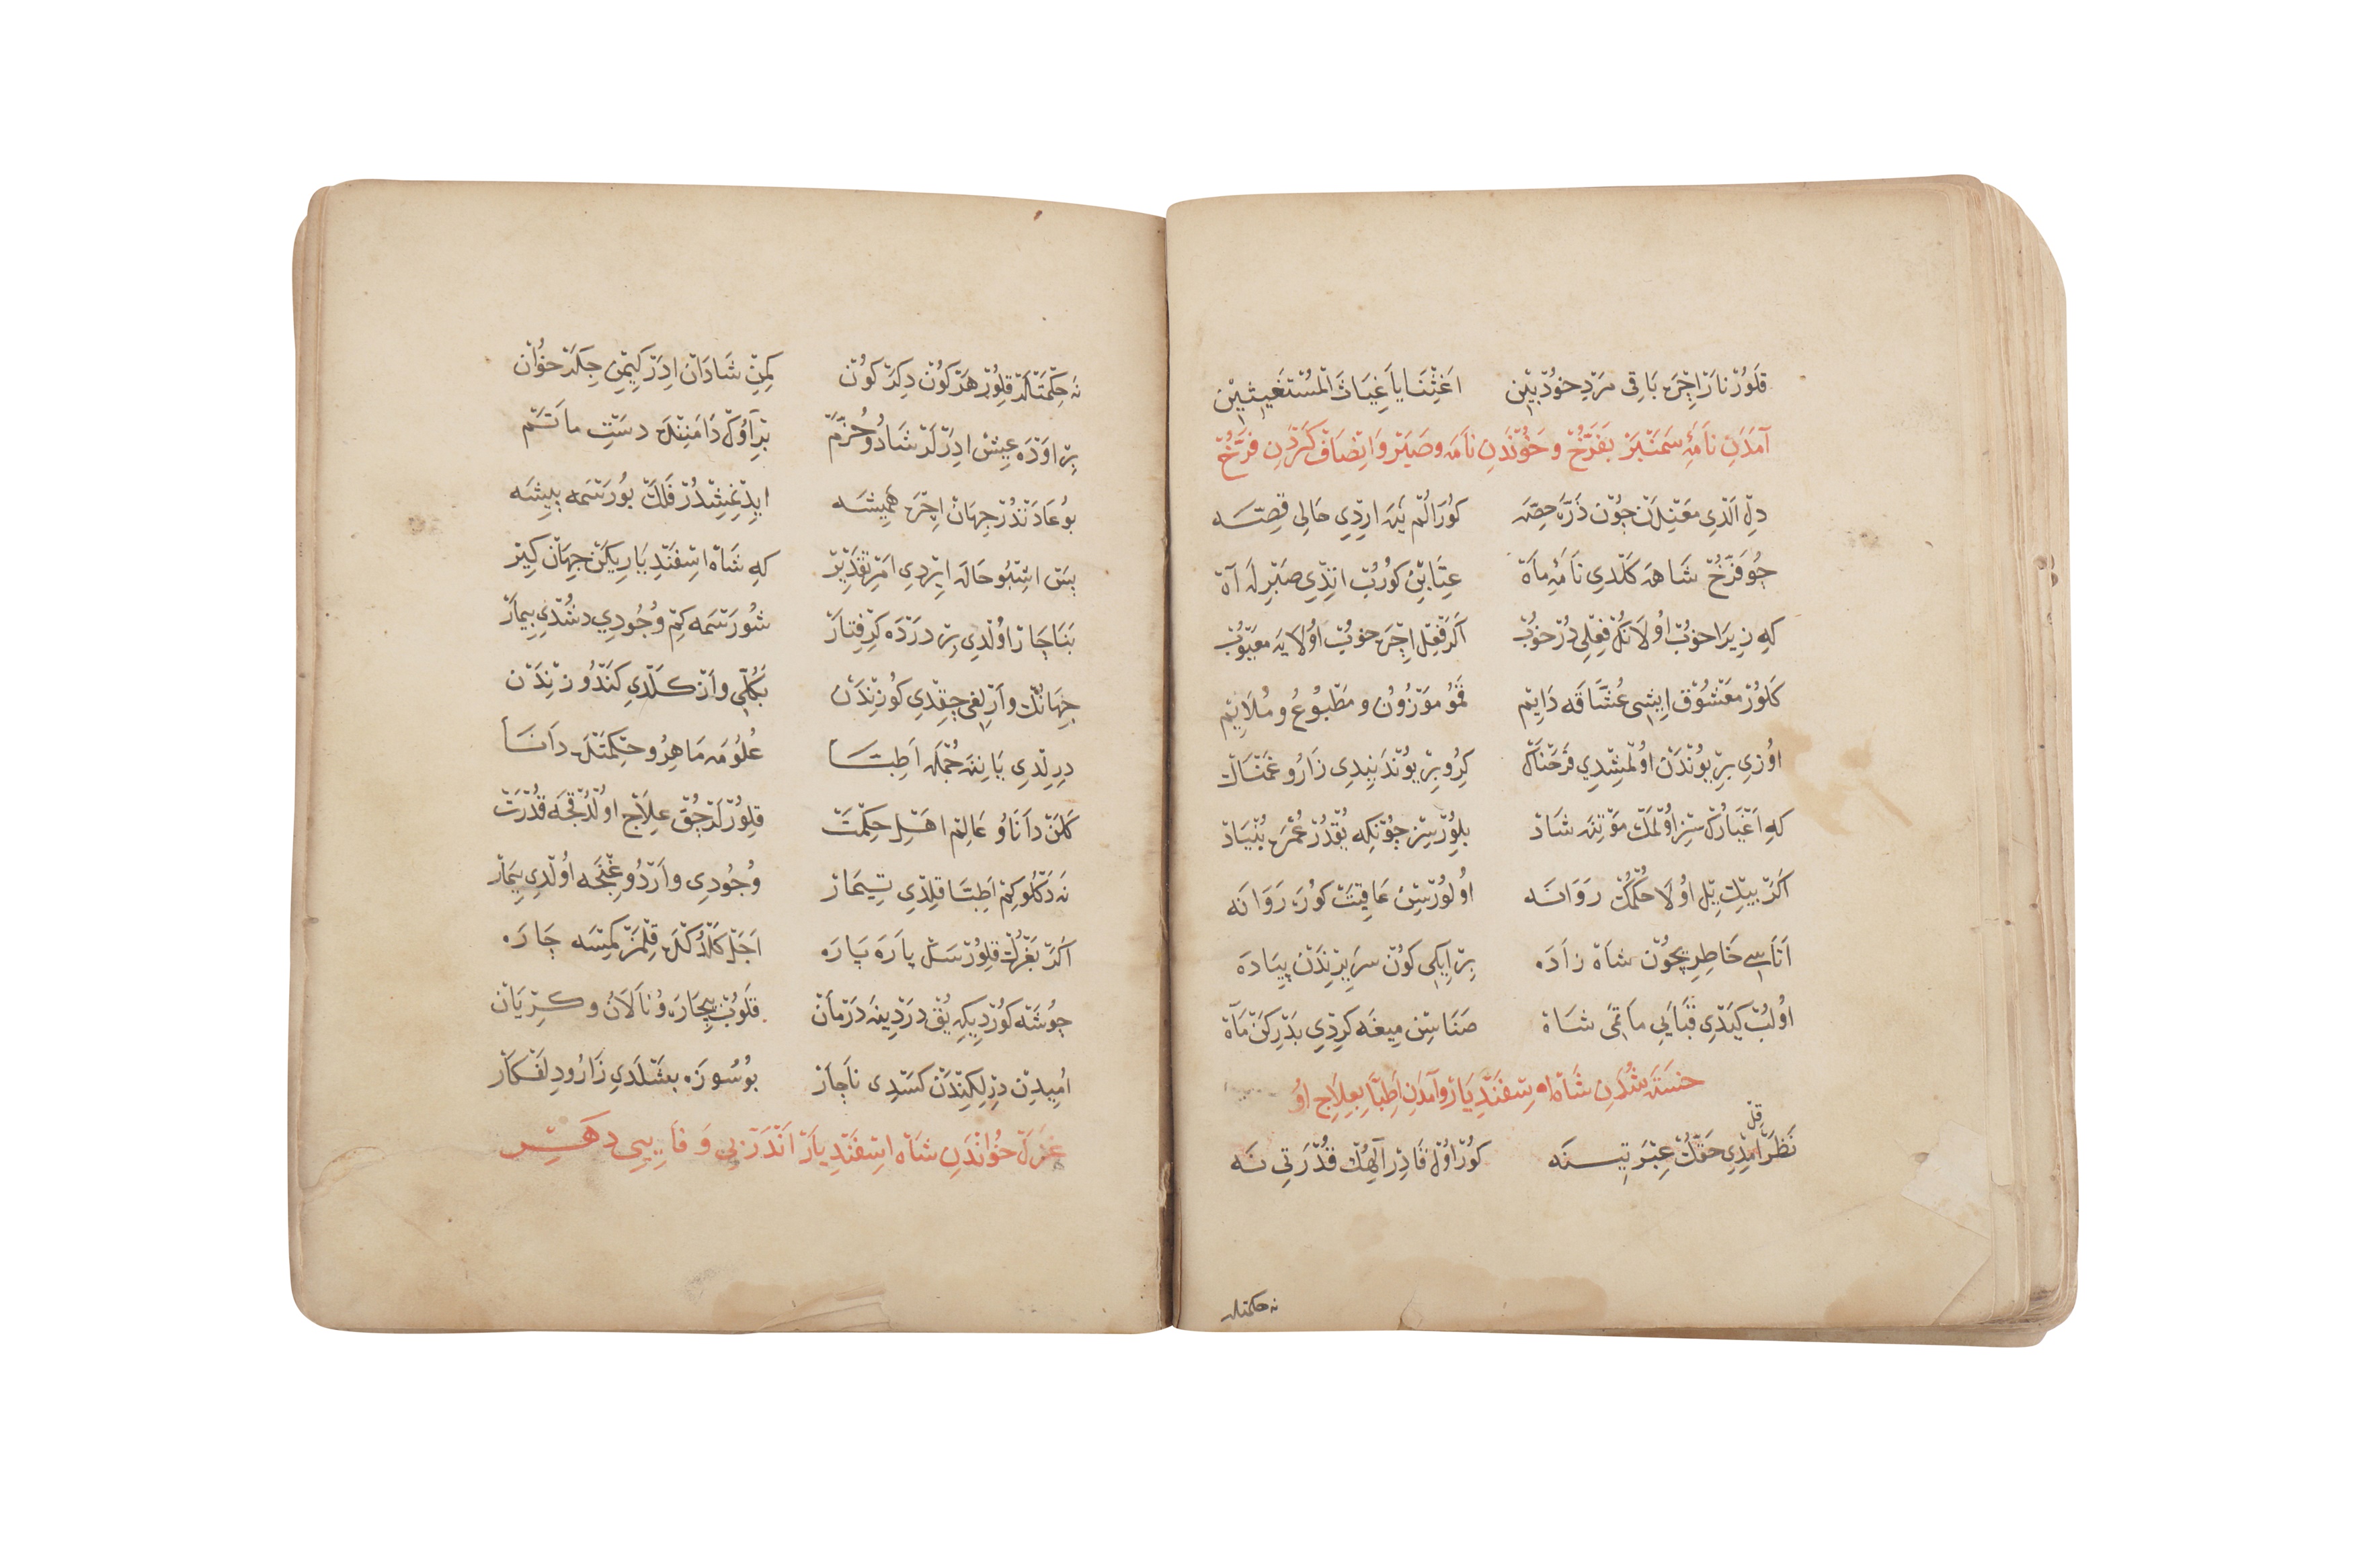 قلور نار اچره باقی مرد خودبین اغثنا یا غیاث المستغیثین
آمدن نامهٔ سمنبر بفرخ و خوندن نامه و صبر و انصاف کردن فرخ
دل الدی معنیلن چون ذره حصه کورالم نیه اردی حالی قصه
چو فرخ شاهه کلدی نامهٔ ماه عتابین کورب اتدی صبریله آه
که زیرا خوب اولانک فعلی در خوب اکر فعل اچره خوب اولایه معیوب
کلور معشوق ایشی عشاقه دایم قمو موزون و مطبوع و ملایم
اوزی بر یوندن اولمشدی فرحناک کرو بر یوندنیدی زار و غمناک
که اغیارک سز اولمک موتنه شاد بلورسز چونکه یوقدر عمره بنیاد
اکر بیک ییل اولا حکمک روانه اولورسن عاقبت کوره روانه
اناسی خاطریچون شاه زاده بر ایکی کون سریرندن پیاده
اولب کیدی قبایی ماتمی شاه صناسن میغه کردی بدر کن ماه
خسته شدن شاه اسفندیار و آمدن اطبا بعلاج او
نظر قل امدی حقک عبرتیسنه کور اول قادر آلهک قدرتی نه
نه حکمتله
نه حکمتلر قلور هر کون دکر کون کمن شادان ادر کیمن جکر خون
بر اوده عیش ادرلر شاد و خرم بر اول دامننله دست ماتم
بو عادتدر جهان اچره همیشه ایدغشدر فلک بو رسمه پیشه
بس اشبو حاله ایردی امر تقدیر که شاه اسفندیاریکن جهان کیر
بناچار اولدی بر درده کرفتار شو رسمه کم وجودی دشدی بیمار
جهانک وارلغی چقدی کوزندن بکلی وار کلدی کندوزندن
دریلدی یاننه جمله اطبا علومه ماهر و حکمتله دانا
کلن دانا و عالم اهل حکمت قلورلر چق علاج اولدقجه قدرت
نه دکلو کم اطبا قلدی تیمار وجودی واردوغنجه اولدی بیمار
اکر بغرک قلورسک پاره پاره اجل کلدکله قلمز کمسه چاره
چو شه کوردیکه یق دردینه درمان قلوب بیچاره و نالان و کریان
امیدن دزلکندن کسدی ناچار بو سوزه بشلدی زار و دل افکار
غزل خواندن شاه اسفندیار اندر بی وفایی دهر